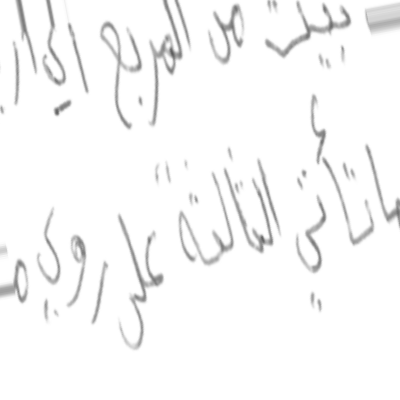 بيت من المربع إلى
ما تأتي الثالثة على روي